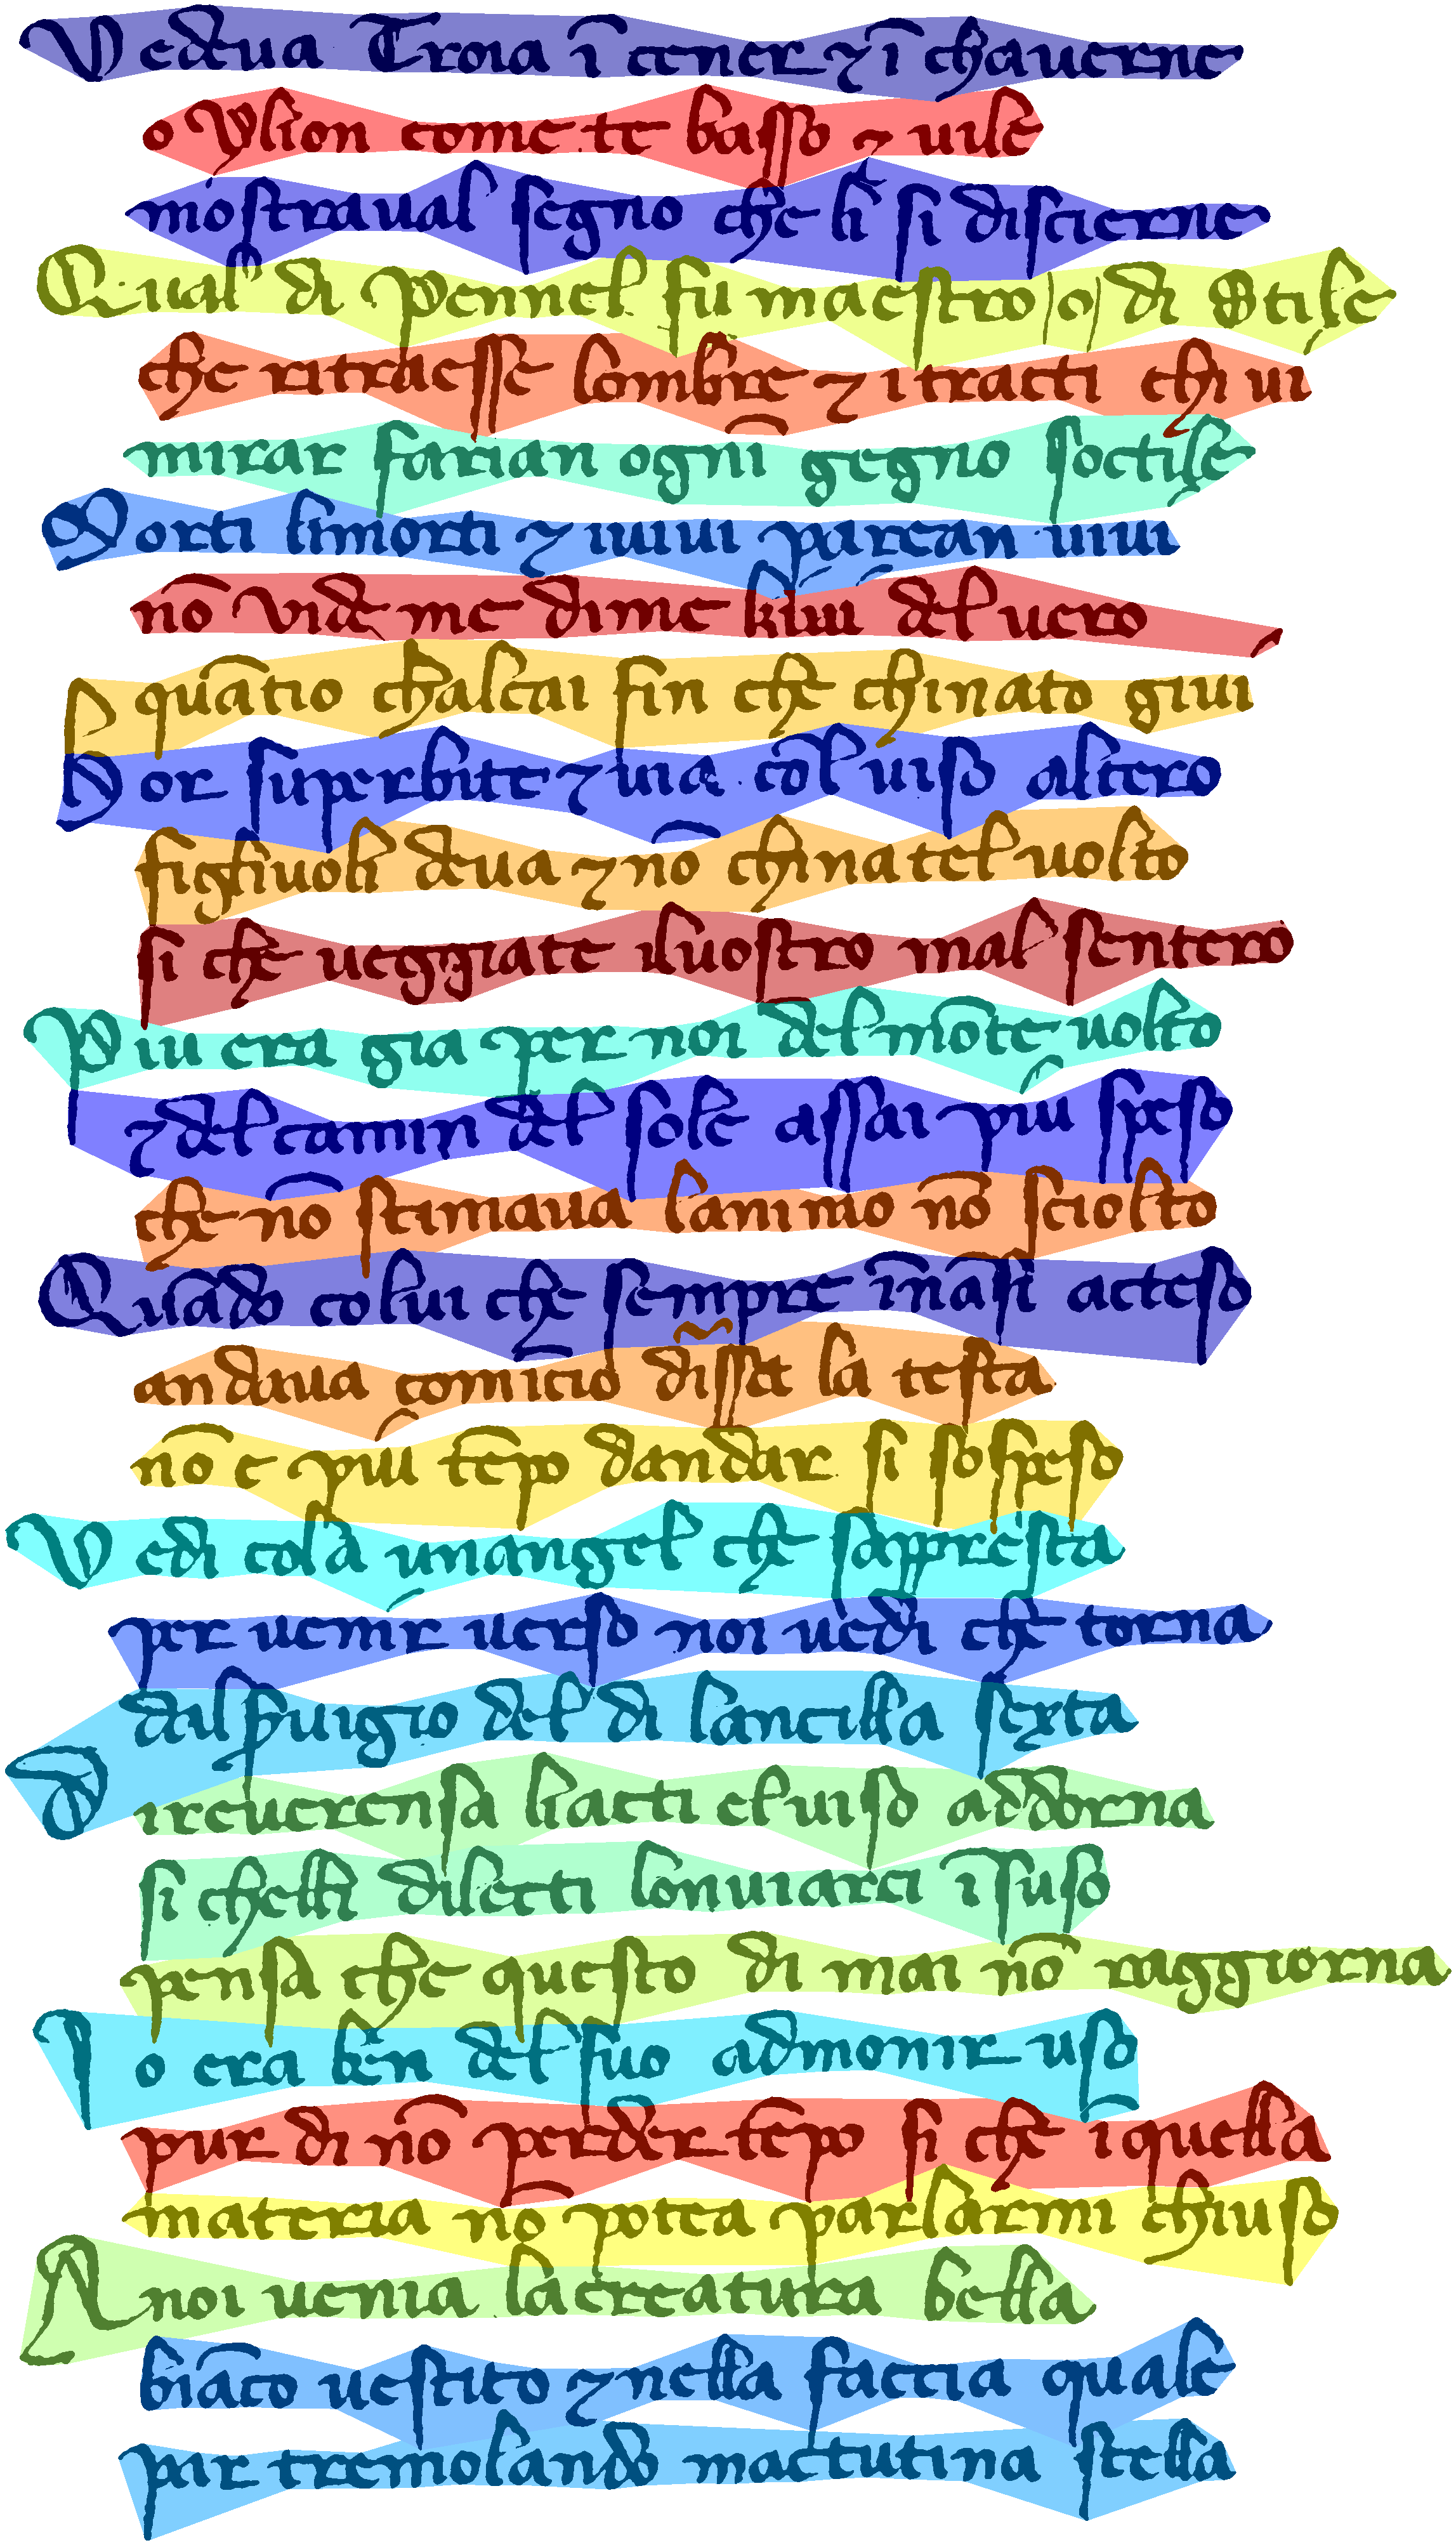 Vedeua Troia ī cener ⁊ ī chauerne
o ylion come te basso ⁊ uile
mostraual segno che li si discierne
Qual di pennel fu maestro |o| di stile
che ritraesse lombre ⁊ i tracti chi ui
mirar farian ogni gegno soctile
Morti limorti ⁊ iuiui parean uiui
nō vide me dime kiui del uero
quātio chalcai fin che chinato giui
Hor superbite ⁊ uia cōl uiso altero
figliuoli deua ⁊ nō chinatel uolto
si che ueggiate iluostro mal sentero
Piu era gia per noi del mōte uolto
⁊ del camin del sole assai piu speso
che nō stimaua lanimo nō sciolto
Quādo colui che sempre īnāsi acteso
andaua comicio disse la testa
nō e piu tēpo dandar si sospeso
Vedi cola unangel che sappresta
per uenir uerso noi uedi che torna
dal seruigio del di lancilla sexta
Direuerensa liacti eluiso addorna
si chelli dilecti lonuiarci ī suso
pensa che questo di mai nō raggiorna
Io era ben del suo admonir uso
pur di nō perder tēpo si che iquella
materia nō potea parlarmi chiuso
A noi uenia lacreatura bella
biāco uestito ⁊ nella faccia quale
par tremolando mactutina stella